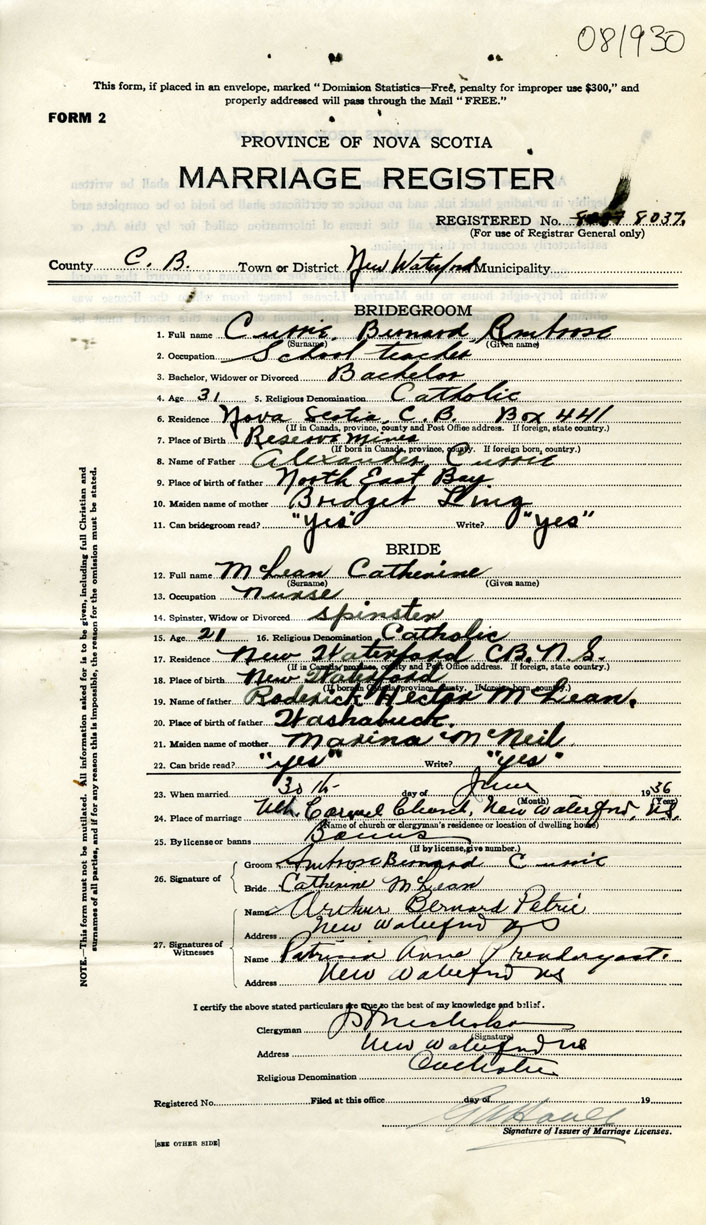 081930
This form, if placed in an envelope, marked "Dominion Statistics—Free, penalty for improper use $300," and
properly addressed will pass through the Mail "FREE."
FORM 2
PROVINCE OF NOVA SCOTIA
MARRIAGE REGISTER
REGISTERED No. 8037.
(For use of Registrar General only)
County C. B. Town or District New Waterford Municipality
BRIDEGROOM
1. Full name Currie, Bernard Ambrose
(Surname) (Given name)
2. Occupation School teacher
3. Bachelor, Widower or Divorced Bachelor
4. Age 31 5. Religious Denomination Catholic
6. Residence Nova Scotia, C. B. Box 441
(If in Canada, province, county and Post Office address. If foreign, state country.)
7. Place of Birth Reserve Mines
(If born in Canada, province, county. If foreign born, country.)
8. Name of Father Alexander Currie
9. Place of birth of father North East Bay
10. Maiden name of mother Bridget
11. Can bridegroom read? "yes" Write? "yes"
BRIDE
12. Full name McLean Catherine
(Surname) (Given name)
13. Occupation Nurse
14. Spinster, Widow or Divorced Spinster
15. Age 21 16. Religious Denomination Catholic
17. Residence New Waterford C.B. N.S.
(If in Canada, province, county and Post Office address. If foreign, state country.)
18. Place of birth New Waterford
(If born in Canada, province, county. If foreign born, country.)
19. Name of father Roderick Hector McLean.
20. Place of birth of father Washabuck.
21. Maiden name of mother Marina McNeil
22. Can bride read? "yes" Write? "yes"
23. When married 30th day of June 1936
(Month) (Year)
24. Place of marriage Mt. Carmel Church, New Waterford, N.S.
(Name of church or clergyman's residence or location of dwelling house)
25. By license or banns Banns
(If by license, give number.)
26. Signature of Groom Ambrose Bernard Currie
Bride Catherine McLean
27. Signatures of Witnesses
Name Arthur Bernard Petrie
Address New Waterford N S
Name Patricia Anne
Address New Waterford NS
I certify the above stated particulars are true to the best of my knowledge and belief.
Clergyman Nicholson
(Signature)
Address New Waterford NS
Religious Denomination Catholic
Registered No. Filed at this office day of 19
Signature of Issuer of Marriage Licenses.
[SEE OTHER SIDE]
NOTE.—This form must not be mutilated. All information asked for is to be given, including full Christian and
surnames of all parties, and if for any reason this is impossible, the reason for the omission must be stated.